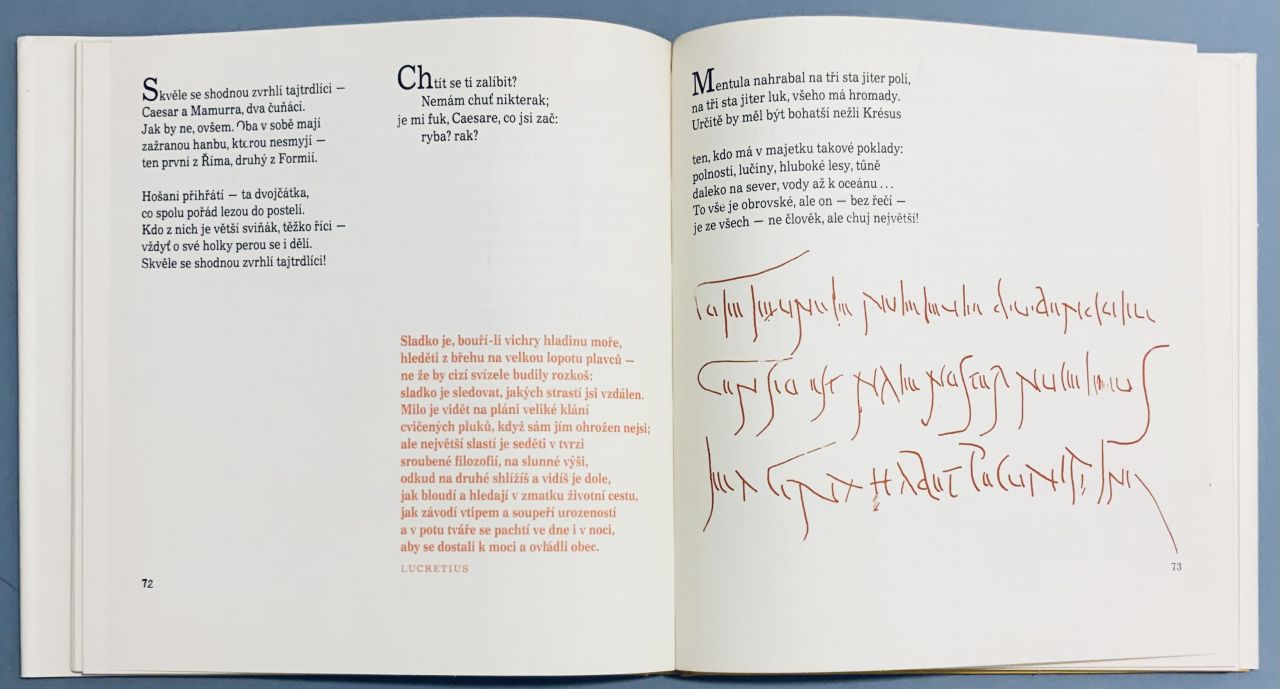 Skvěle se shodnou zvrhlí tajtrdlíci —
Caesar a Mamurra, dva čuňáci.
Jak by ne, ovšem. Oba v sobě mají
zažranou hanbu, kterou nesmyjí —
ten první z Říma, druhý z Formií.
Hošani přihřátí — ta dvojčátka,
co spolu pořád lezou do postelí.
Kdo z nich je větší sviňák, těžko říci —
vždyť o své holky perou se i dělí.
Skvěle se shodnou zvrhlí tajtrdlíci!
72
Chtít se ti zalíbit?
Nemám chuť nikterak;
je mi fuk, Caesare, co jsi zač:
ryba? rak?
Sladko je, bouří-li vichry hladinu moře,
hleděti z břehu na velkou lopotu plavců —
ne že by cizí svízele budily rozkoš:
sladko je sledovat, jakých strastí jsi vzdálen.
Milo je vidět na pláni veliké klání
cvičených pluků, když sám jím ohrožen nejsi;
ale největší slastí je seděti v tvrzi
sroubené filozofií, na slunné výši,
odkud na druhé shlížíš a vidíš je dole,
jak bloudí a hledají v zmatku životní cestu,
jak závodí vtipem a soupeří urozeností
a v potu tváře se pachtí ve dne i v noci,
aby se dostali k moci a ovládli obec.
LUCRETIUS
Mentula nahrabal na tři sta jiter polí,
na tři sta jiter luk, všeho má hromady.
Určitě by měl být bohatší nežli Krésus
ten, kdo má v majetku takové poklady:
polnosti, lučiny, hluboké lesy, tůně
daleko na sever, vody až k oceánu...
To vše je obrovské, ale on — bez řečí —
je ze všech — ne člověk, ale chuj největší!
73